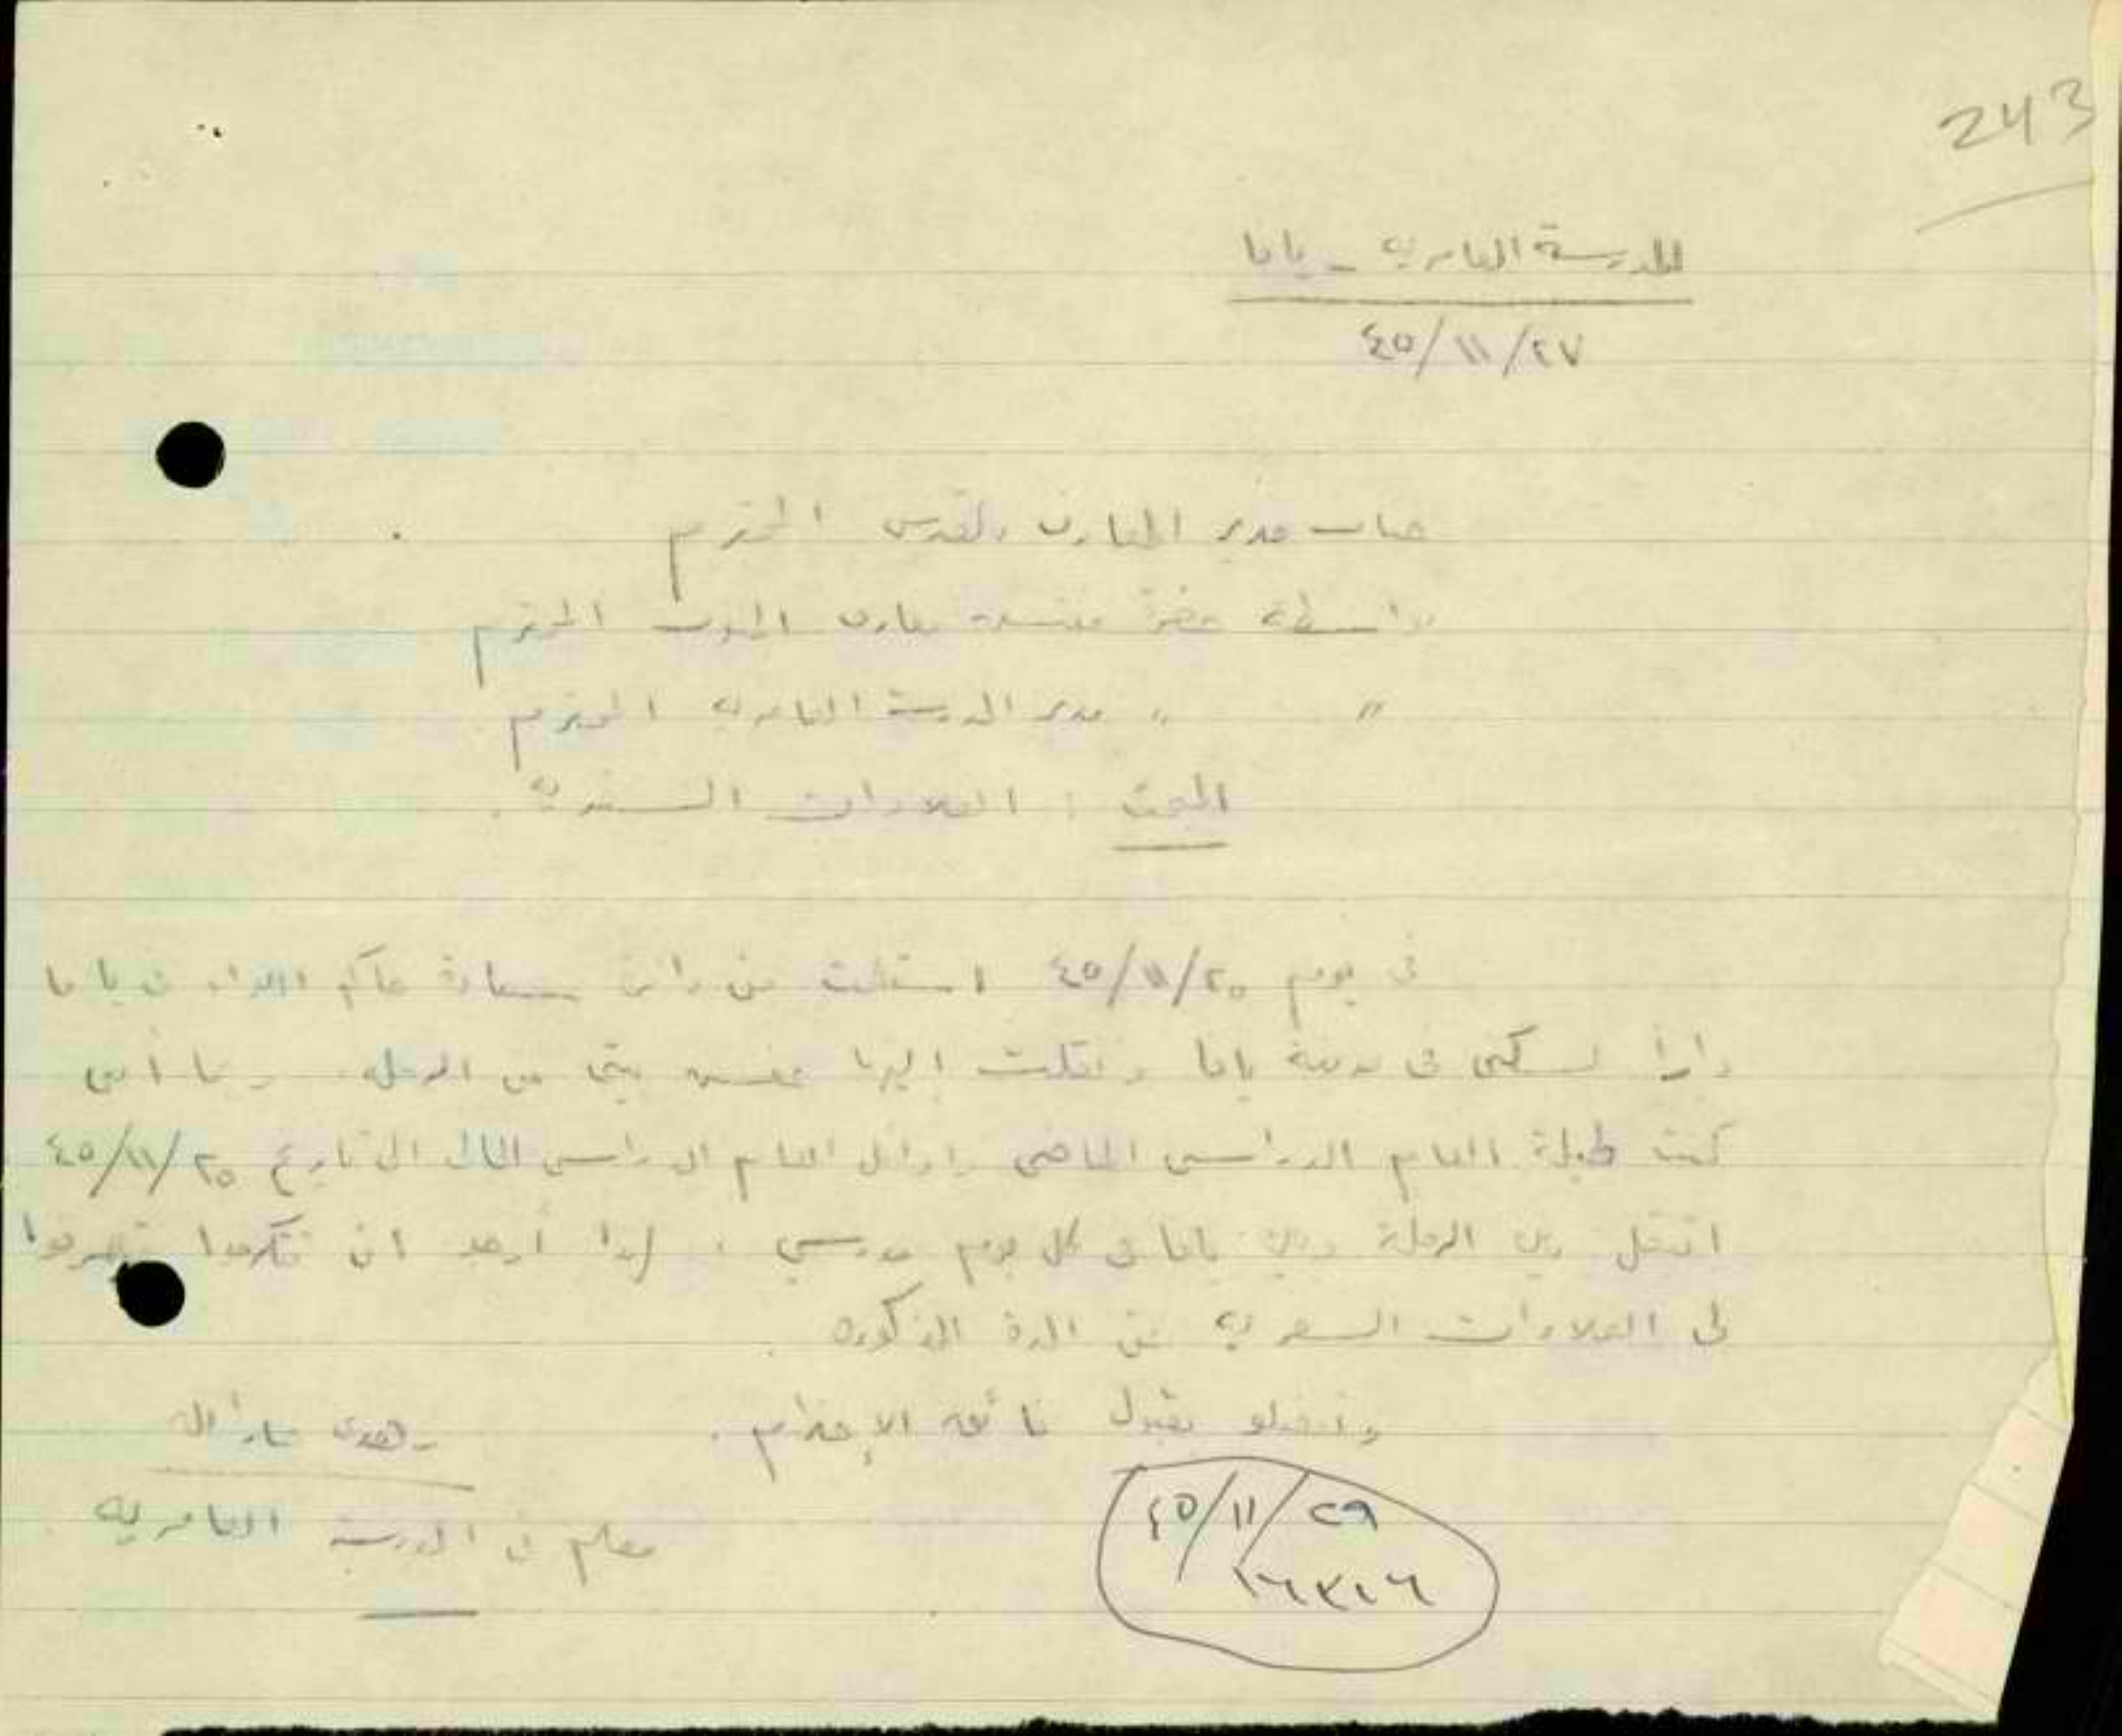 243
المدرسة العامرية - يافا
٤٥/١١/٢٧
جناب مدير المعارف بالقدس المحترم
بواسطة حضرة مفتش معارف الجنوب المحترم
" " مدير المدرسة العامرية المحترم
المبحث : العلاوات السفرية .
في يوم ٤٥/١١/٢٠ استلمت من سعادة حاكم اللواء في يافا
دارا لسكني في مدينة يافا ونقلت إليها عفش بيتي من الرملة. وبما أنني
كنت طيلة العام الدراسي الماضي واوائل العام الدراسي الحالي الى تاريخ ٤٥/١١/٢٠
اتنقل بين الرملة وبين يافا في كل يوم مدرسي ، لذا أرجو ان تتكرموا
لي العلاوات السفرية عن المدة المذكورة .
وتفضلو بقبول فائق الإحترام .
معلم في المدرسة العامرية
٤٥/١١/٢٩
١٦٣١٦